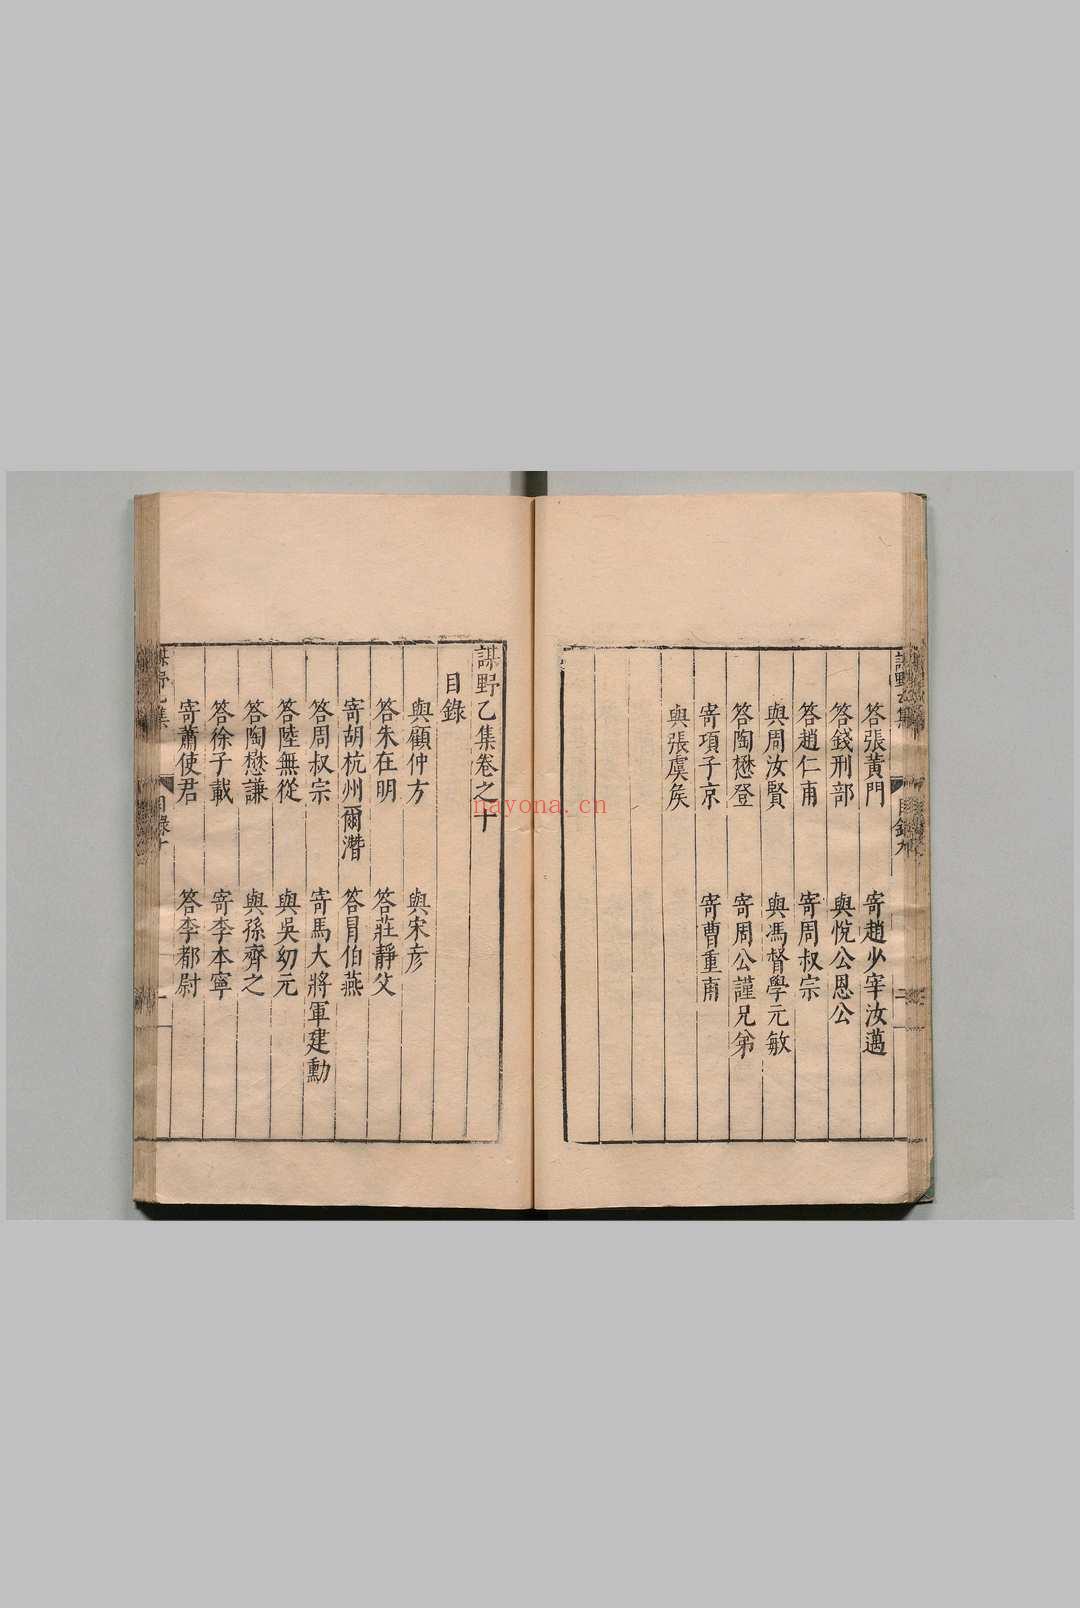 謀野乙集
目錄九
答張黃門
寄趙少宰汝邁
答錢刑部
與悅公恩公
答趙仁甫
寄周叔宗
與周汝賢
與馮督學元敏
答陶懋登
寄周公謹兄弟
寄項子京
寄曹重甫
與張虞矦
謀野乙集卷之十
目錄
與顧仲方
與宋彦
答朱在明
答莊靜父
寄胡杭州爾濳
答冐伯燕
答周叔宗
寄馬大將軍建勳
答陸無從
與吳幼元
答陶懋謙
與孫齊之
答徐子載
寄李本寧
寄蕭使君
答李都尉
謀野乙集
目錄十
nayona.cn